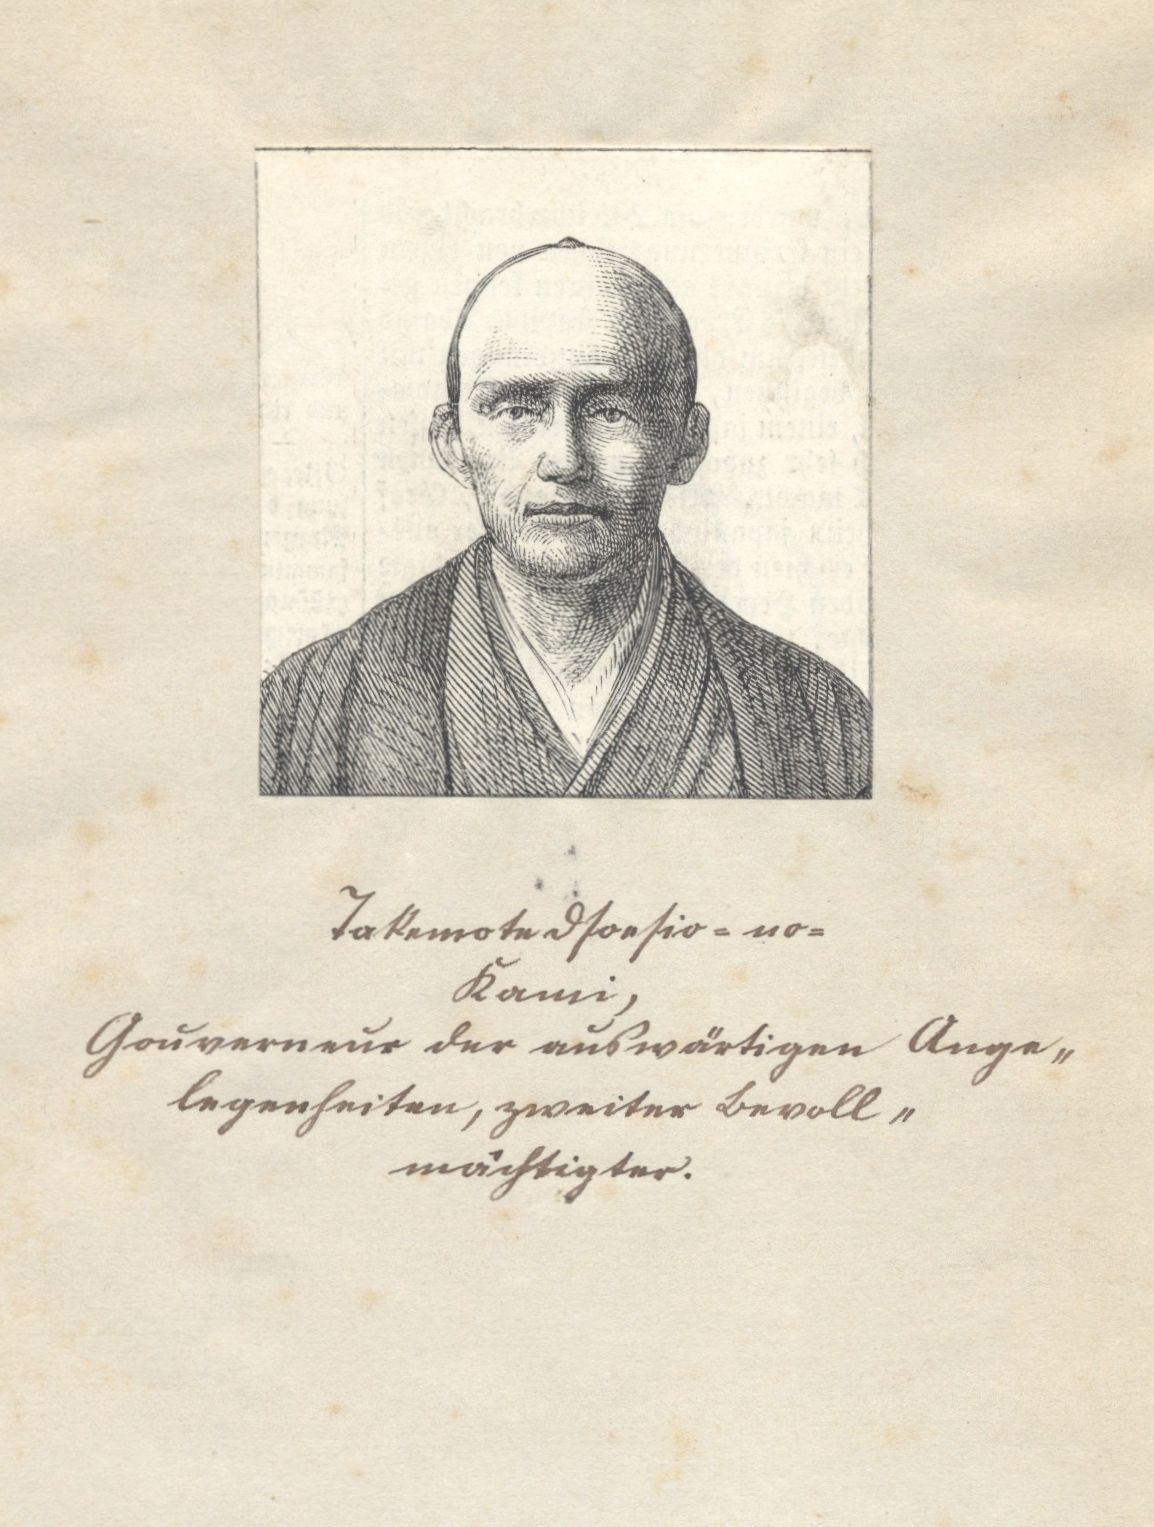 Takemote Dsoesio=no=
Kami,
Gouverneur der auswärtigen Ange„
legenheiten, zweiter Bevoll„
mächtigter.